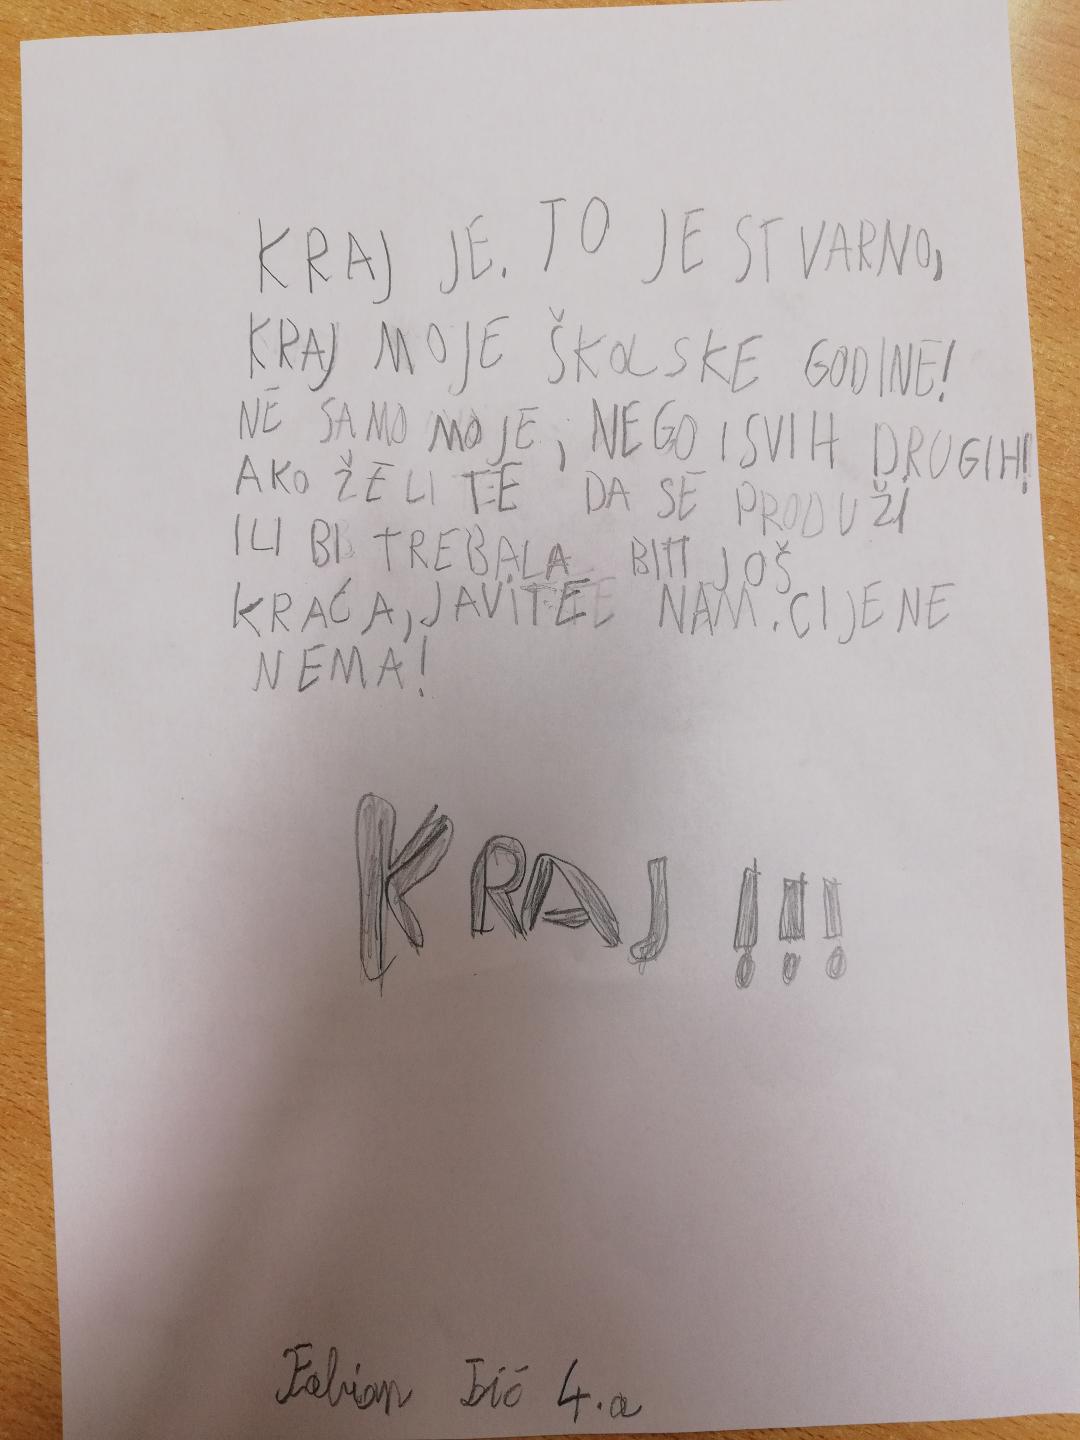 KRAJ JE. TO JE STVARNO,
KRAJ MOJE ŠKOLSKE GODINE!
NE SAMO MOJE, NEGO I SVIH DRUGIH!
AKO ŽELITE DA SE PRODUŽI
ILI BI TREBALA BITI JOŠ
KRAĆA, JAVITE NAM. CIJENE
NEMA!
KRAJ!!!
Fabian 4.a